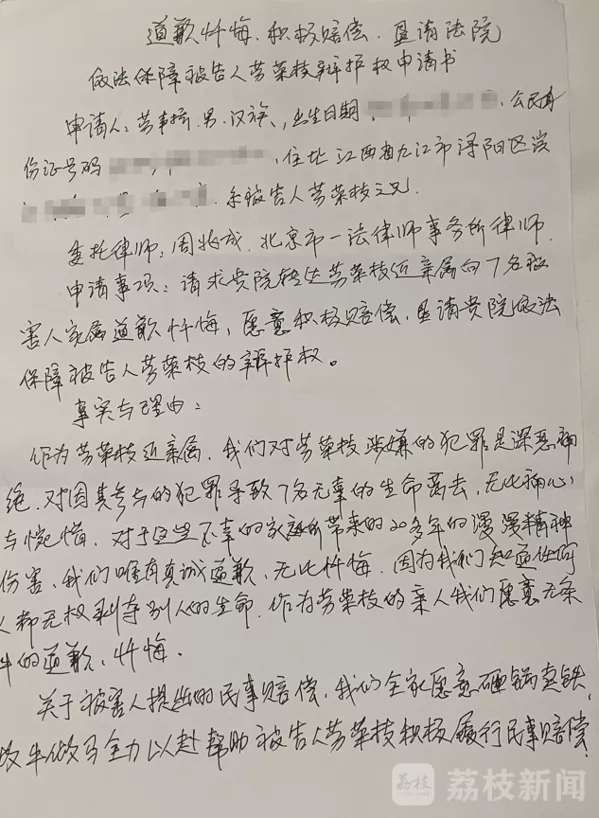 道歉忏悔、积极赔偿、恳请法院
依法保障被告人劳荣枝辩护权申请书
申请人：劳声桥，男，汉族，出生日期，公民身
份证号码，住址江西省九江市浔阳区滨
系被告人劳荣枝之兄。
委托律师：周兆成，北京市一法律师事务所律师
申请事项：请求贵院转达劳荣枝近亲属向7名被
害人家属道歉忏悔，愿意积极赔偿，恳请贵院依法
保障被告人劳荣枝的辩护权。
事实与理由：
作为劳荣枝近亲属，我们对劳荣枝涉嫌的犯罪是深恶痛
绝，对因其参与的犯罪导致7名无辜的生命离去，无比痛心
与惋惜，对于这些不幸的家庭所带来的20多年的漫漫精神
伤害，我们唯有真诚道歉，无比忏悔，因为我们知道任何
人都无权剥夺别人的生命，作为劳荣枝的亲人我们愿意无条
件的道歉、忏悔。
关于被害人提出的民事赔偿，我们全家愿意砸锅卖铁，
做牛做马全力以赴帮助被告人劳荣枝积极履行民事赔偿，
荔枝 荔枝新闻